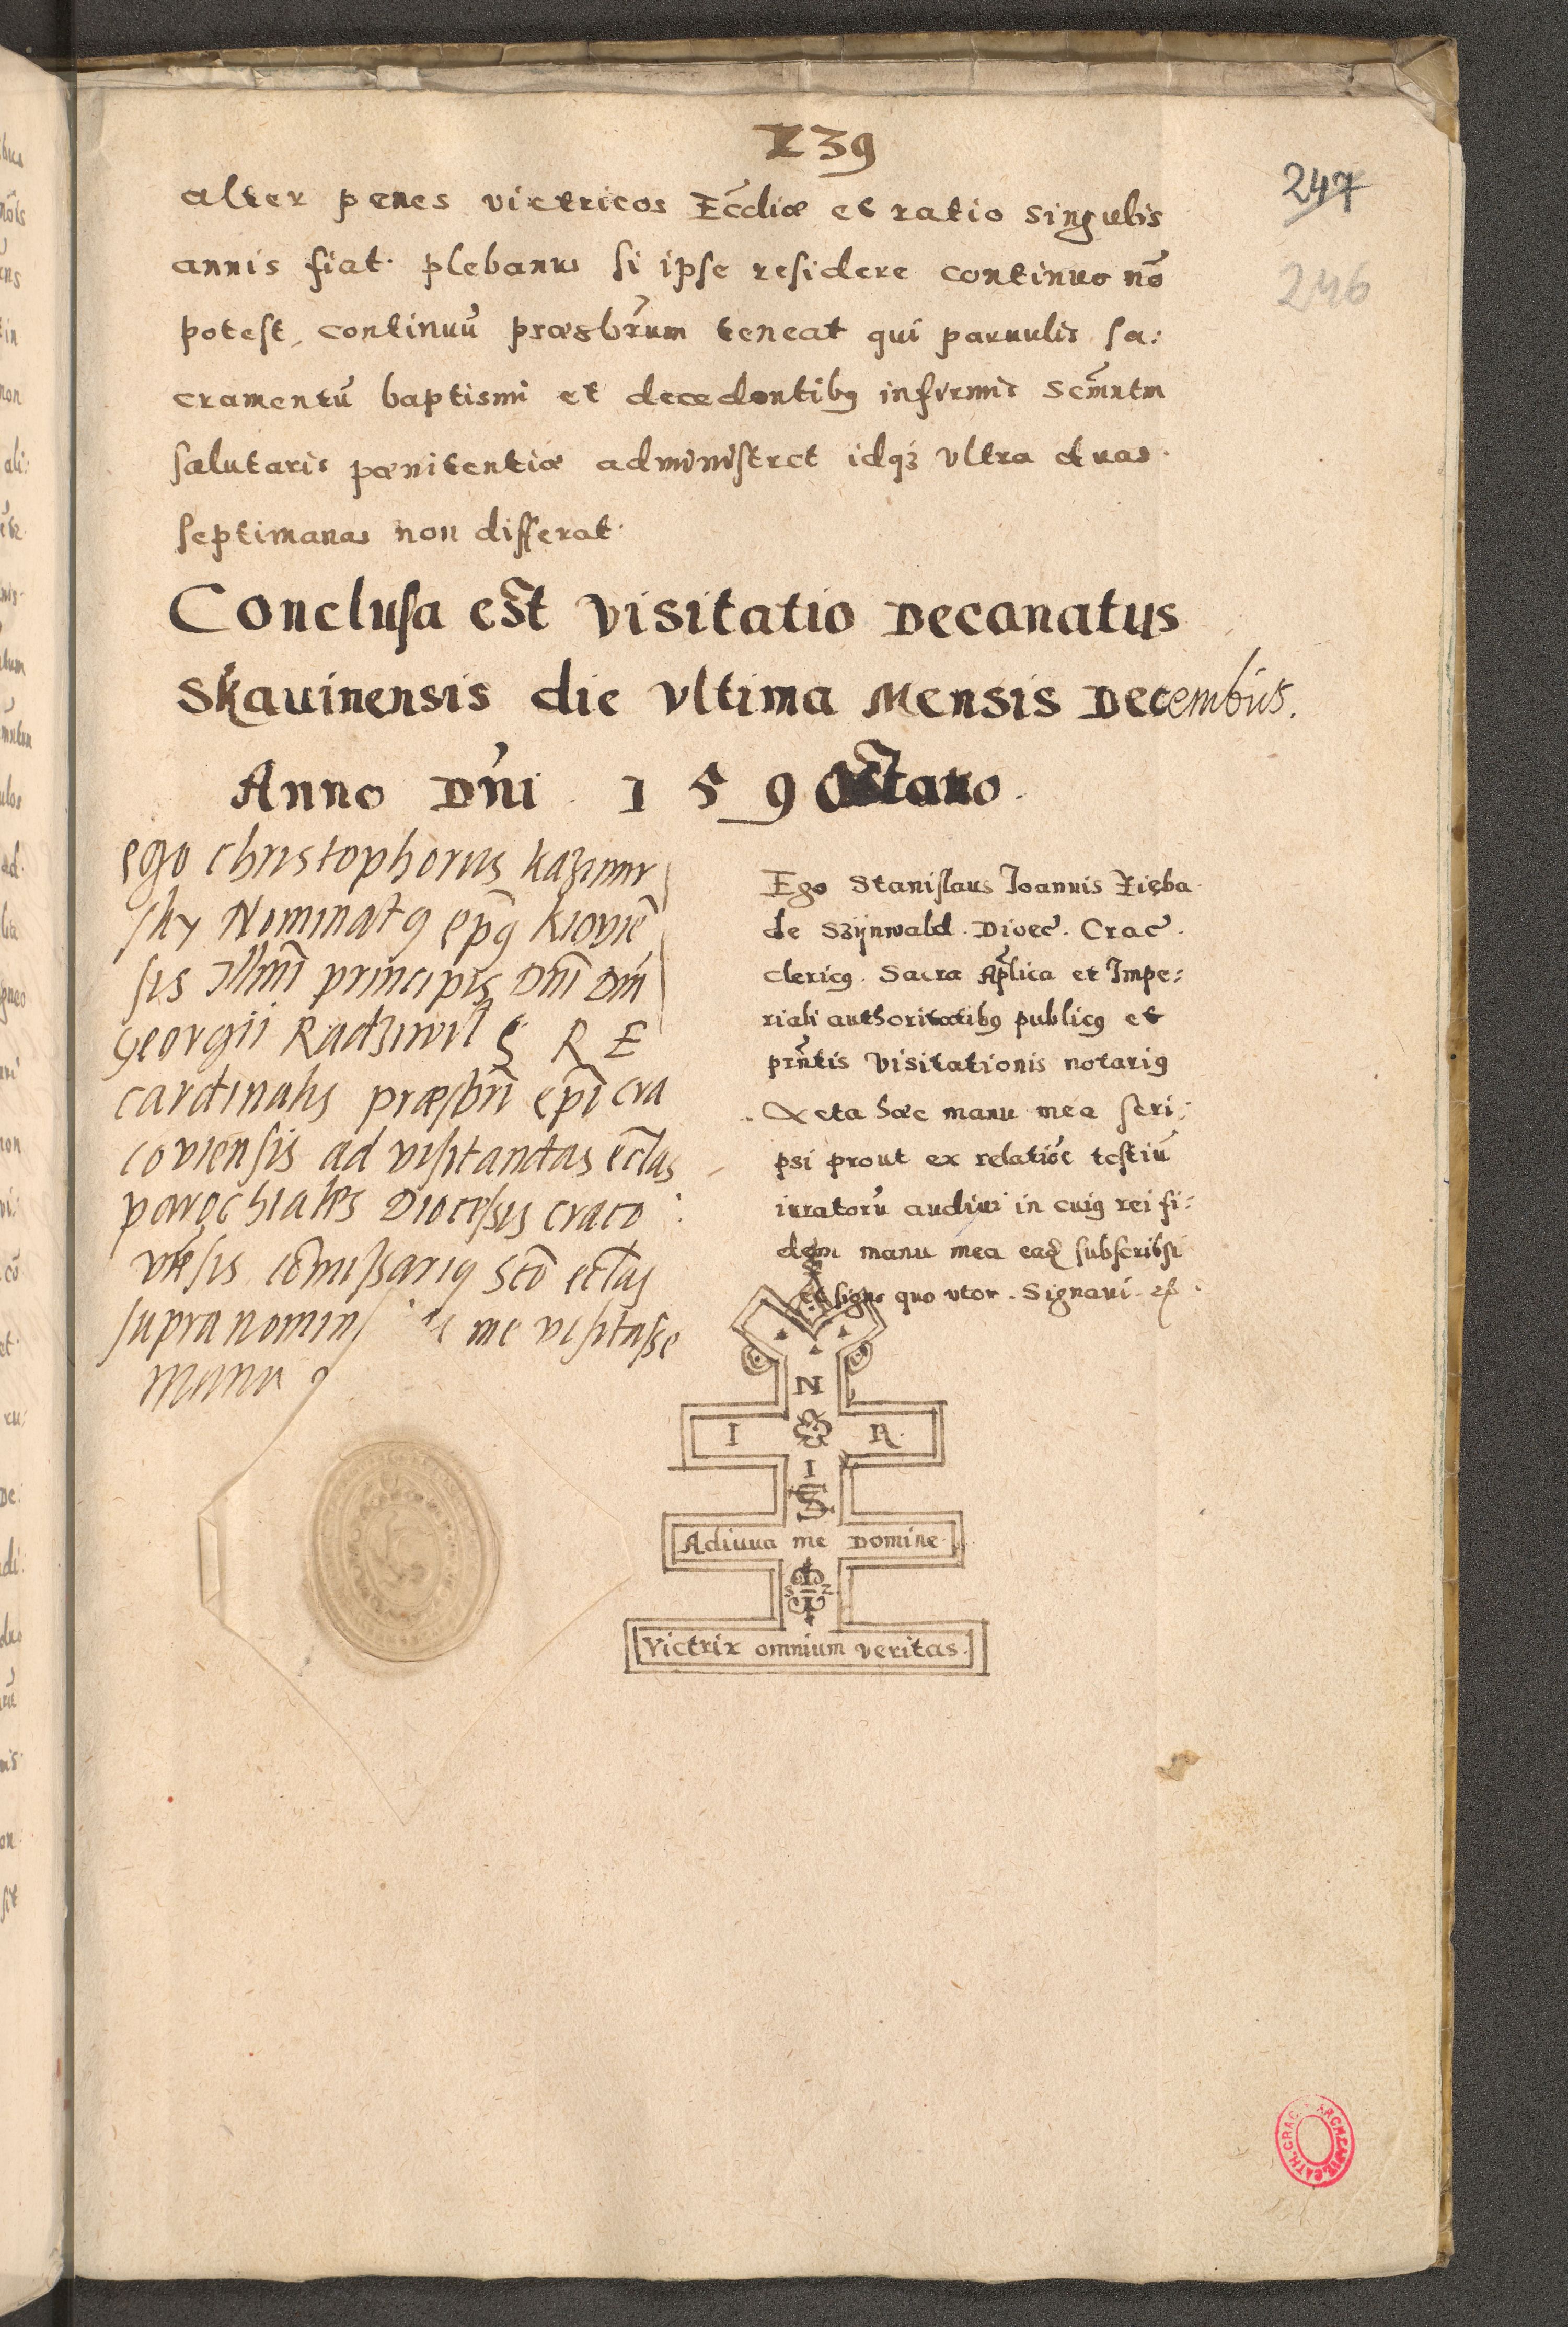 239
247
246
alter penes victricos Eccĺiæ et ratio singulis
annis fiat. plebanus si ipse residere continuo nō
potest, continuū præsbr̃um teneat qui paruulis sa:
cramentū baptismi et decedentibꝯ infirmis Scm̃ntm
salutaris pœnitentiæ administret idqꝫ vltra duas
septimanas non differat.
Conclusa est visitatio Decanatus
Skauinensis die vltima Mensis Decembris.
Anno Dńi 159 Octauo.
ego christophorus kazimir
sky Nominatꝯ ep̄ꝯ kiovie͂
sis Illmi principis Dni Dni
georgii Radziwil S R E
cardinalis præsbri ep̄i cra
coviensis ad visitandas ecc̄las
parochiales Diocesis craco
viēsis com̄issariꝯ
supranomin me visitasse
manu
Ego Stanislaus Joannis Zięba
de Szÿnwald. Dioec̃. Crac̃.
clericꝯ. Sacra Ap̃lica et Impe:
riali authoritatibꝯ publicꝯ et
prñtis visitationis notariꝯ
Acta hæc manu mea scri:
psi prout ex relatiōe testiū
iuratorū audiui in cuiꝯ rei fi:
dem manu mea eaq̃ subscribsi
et signo quo vtor. Signaui.
N
I R
I
S
Adiuua me Domine
S Z
Victrix omnium veritas.